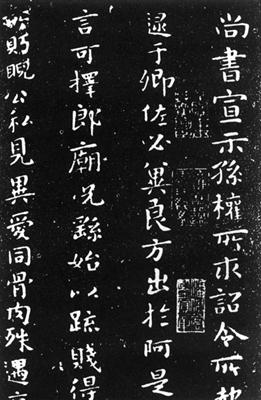 尚書宣示孫權所求詔令所報
逮于卿佐必冀良方出於阿是
言可擇郎廟况繇始以疏賤得
睨公私見異愛同骨肉殊遇